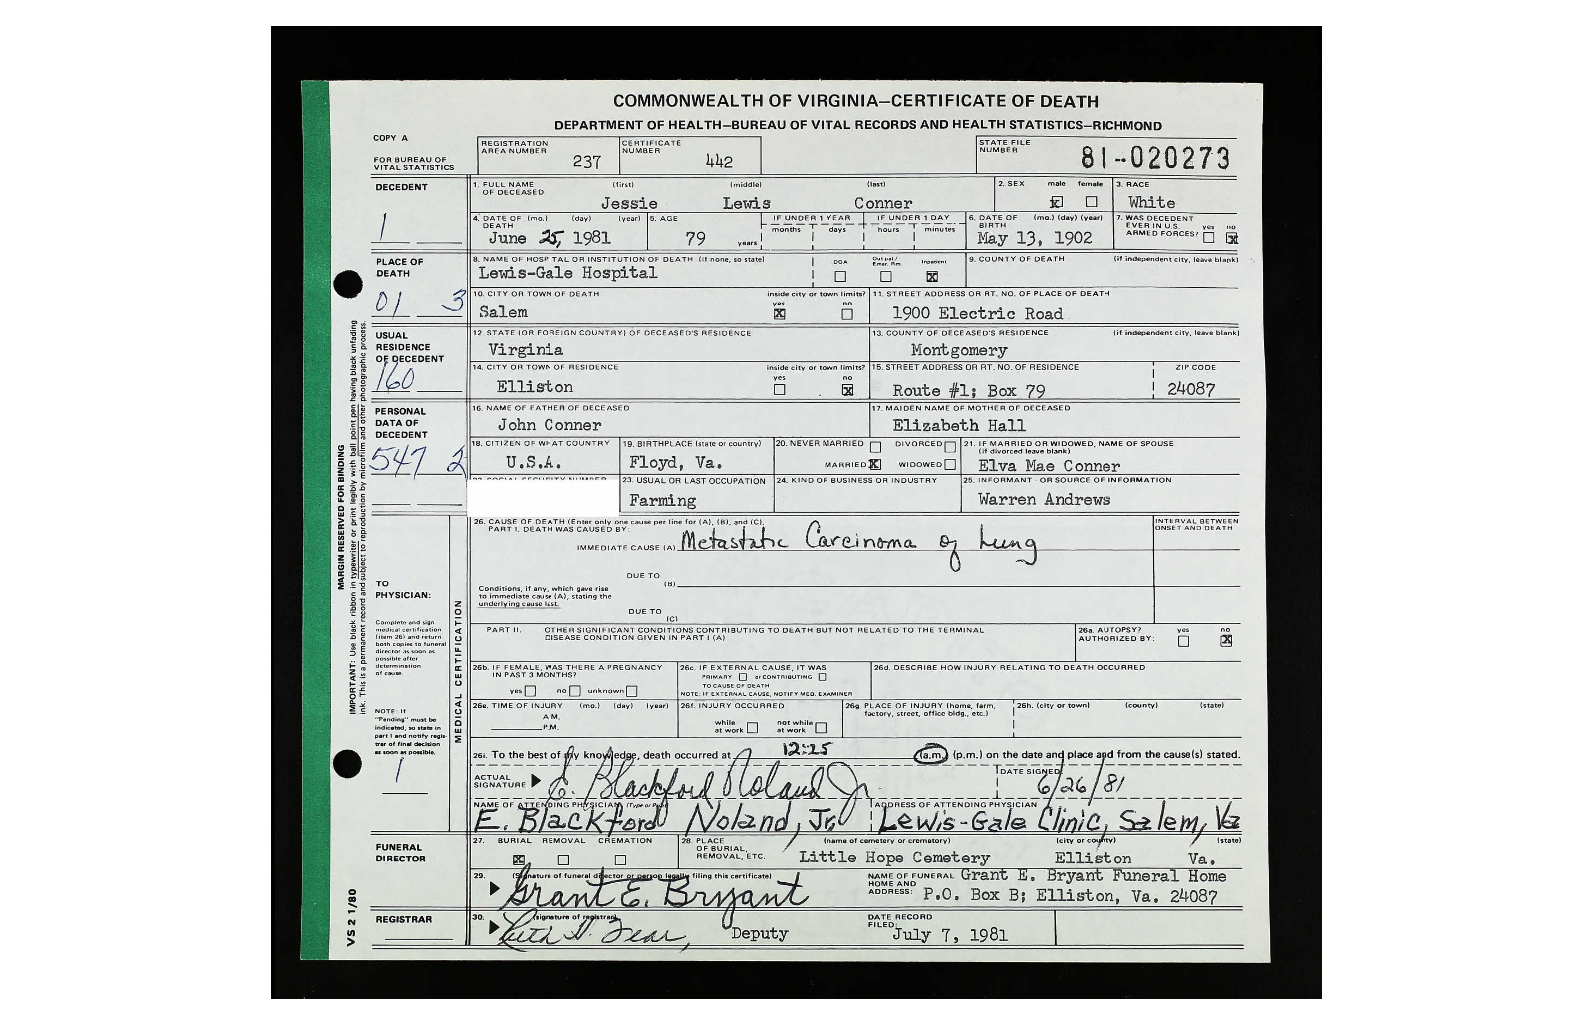 COMMONWEALTH OF VIRGINIA—CERTIFICATE OF DEATH
DEPARTMENT OF HEALTH—BUREAU OF VITAL RECORDS AND HEALTH STATISTICS—RICHMOND
COPY A
FOR BUREAU OF VITAL STATISTICS
REGISTRATION AREA NUMBER 237
CERTIFICATE NUMBER 442
STATE FILE NUMBER 81-020273
DECEDENT
1
1. FULL NAME OF DECEASED (first) (middle) (last)
Jessie Lewis Conner
2. SEX male female
X
3. RACE
White
4. DATE OF DEATH (mo.) (day) (year)
June 25, 1981
5. AGE
79 years
IF UNDER 1 YEAR months days
IF UNDER 1 DAY hours minutes
6. DATE OF BIRTH (mo.) (day) (year)
May 13, 1902
7. WAS DECEDENT EVER IN U.S. ARMED FORCES? yes no
X
PLACE OF DEATH
01 3
8. NAME OF HOSPITAL OR INSTITUTION OF DEATH (if none, so state)
Lewis-Gale Hospital
DOA Out pat./ Emer. Rm. Inpatient
X
9. COUNTY OF DEATH (if independent city, leave blank)
10. CITY OR TOWN OF DEATH inside city or town limits? yes no
Salem X
11. STREET ADDRESS OR RT. NO. OF PLACE OF DEATH
1900 Electric Road
USUAL RESIDENCE OF DECEDENT
160
12. STATE (OR FOREIGN COUNTRY) OF DECEASED'S RESIDENCE
Virginia
13. COUNTY OF DECEASED'S RESIDENCE (if independent city, leave blank)
Montgomery
14. CITY OR TOWN OF RESIDENCE inside city or town limits? yes no
Elliston X
15. STREET ADDRESS OR RT. NO. OF RESIDENCE ZIP CODE
Route #1; Box 79 24087
PERSONAL DATA OF DECEDENT
547 2
16. NAME OF FATHER OF DECEASED
John Conner
17. MAIDEN NAME OF MOTHER OF DECEASED
Elizabeth Hall
18. CITIZEN OF WHAT COUNTRY
U.S.A.
19. BIRTHPLACE (state or country)
Floyd, Va.
20. NEVER MARRIED DIVORCED
MARRIED X WIDOWED
21. IF MARRIED OR WIDOWED, NAME OF SPOUSE (if divorced leave blank)
Elva Mae Conner
23. USUAL OR LAST OCCUPATION
Farming
24. KIND OF BUSINESS OR INDUSTRY
25. INFORMANT - OR SOURCE OF INFORMATION
Warren Andrews
MARGIN RESERVED FOR BINDING
IMPORTANT: Use black ribbon in typewriter or print legibly with ball point pen having black unfading
ink. This is permanent record and subject to reproduction by microfilm and other photographic process.
VS 2 1/80
TO PHYSICIAN:
Complete and sign medical certification (item 26) and return both copies to funeral director as soon as possible after determination of cause.
NOTE: If "Pending" must be indicated, so state in part I and notify registrar of final decision as soon as possible.
1
MEDICAL CERTIFICATION
26. CAUSE OF DEATH (Enter only one cause per line for (A), (B), and (C).
PART I. DEATH WAS CAUSED BY:
INTERVAL BETWEEN ONSET AND DEATH
IMMEDIATE CAUSE (A) Metastatic Carcinoma of Lung
DUE TO (B)
Conditions, if any, which gave rise to immediate cause (A), stating the underlying cause last.
DUE TO (C)
PART II. OTHER SIGNIFICANT CONDITIONS CONTRIBUTING TO DEATH BUT NOT RELATED TO THE TERMINAL DISEASE CONDITION GIVEN IN PART I (A)
26a. AUTOPSY? AUTHORIZED BY: yes no
X
26b. IF FEMALE, WAS THERE A PREGNANCY IN PAST 3 MONTHS?
yes no unknown
26c. IF EXTERNAL CAUSE, IT WAS
PRIMARY or CONTRIBUTING
TO CAUSE OF DEATH
NOTE: IF EXTERNAL CAUSE, NOTIFY MED. EXAMINER
26d. DESCRIBE HOW INJURY RELATING TO DEATH OCCURRED
26e. TIME OF INJURY (mo.) (day) (year)
A.M.
P.M.
26f. INJURY OCCURRED
while at work not while at work
26g. PLACE OF INJURY (home, farm, factory, street, office bldg., etc.)
26h. (city or town) (county) (state)
26i. To the best of my knowledge, death occurred at 12:25 (a.m.) (p.m.) on the date and place and from the cause(s) stated.
ACTUAL SIGNATURE E. Blackford Noland Jr.
DATE SIGNED 6/26/81
NAME OF ATTENDING PHYSICIAN (Type or Print)
E. Blackford Noland, Jr.
ADDRESS OF ATTENDING PHYSICIAN
Lewis-Gale Clinic, Salem, Va
FUNERAL DIRECTOR
27. BURIAL REMOVAL CREMATION
X
28. PLACE OF BURIAL, REMOVAL, ETC. (name of cemetery or crematory) (city or county) (state)
Little Hope Cemetery Elliston Va.
29. (Signature of funeral director or person legally filing this certificate)
Grant E. Bryant
NAME OF FUNERAL HOME AND ADDRESS: Grant E. Bryant Funeral Home
P.O. Box B; Elliston, Va. 24087
REGISTRAR
30. (signature of registrar)
Deputy
DATE RECORD FILED:
July 7, 1981